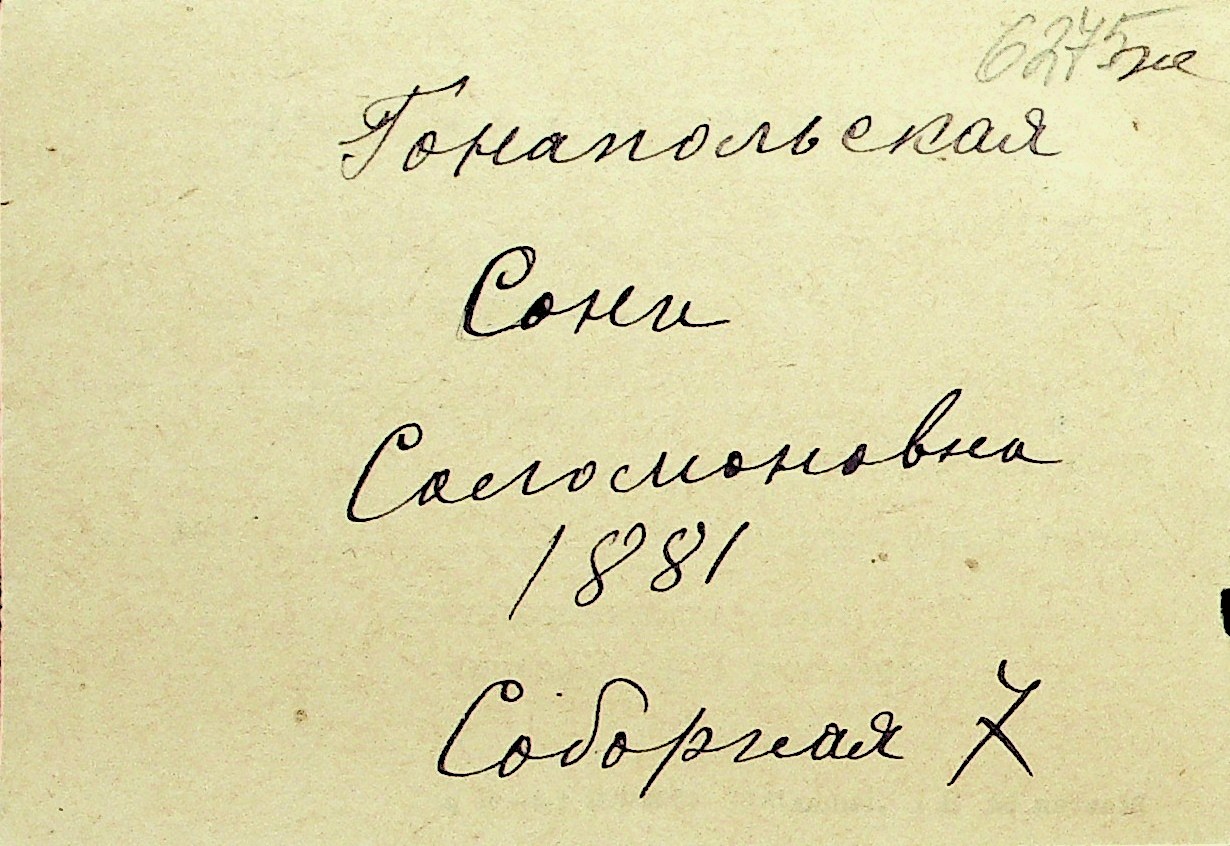 6275 же
Гонапольская
Сони
Соломоновна
1881
Соборная 7